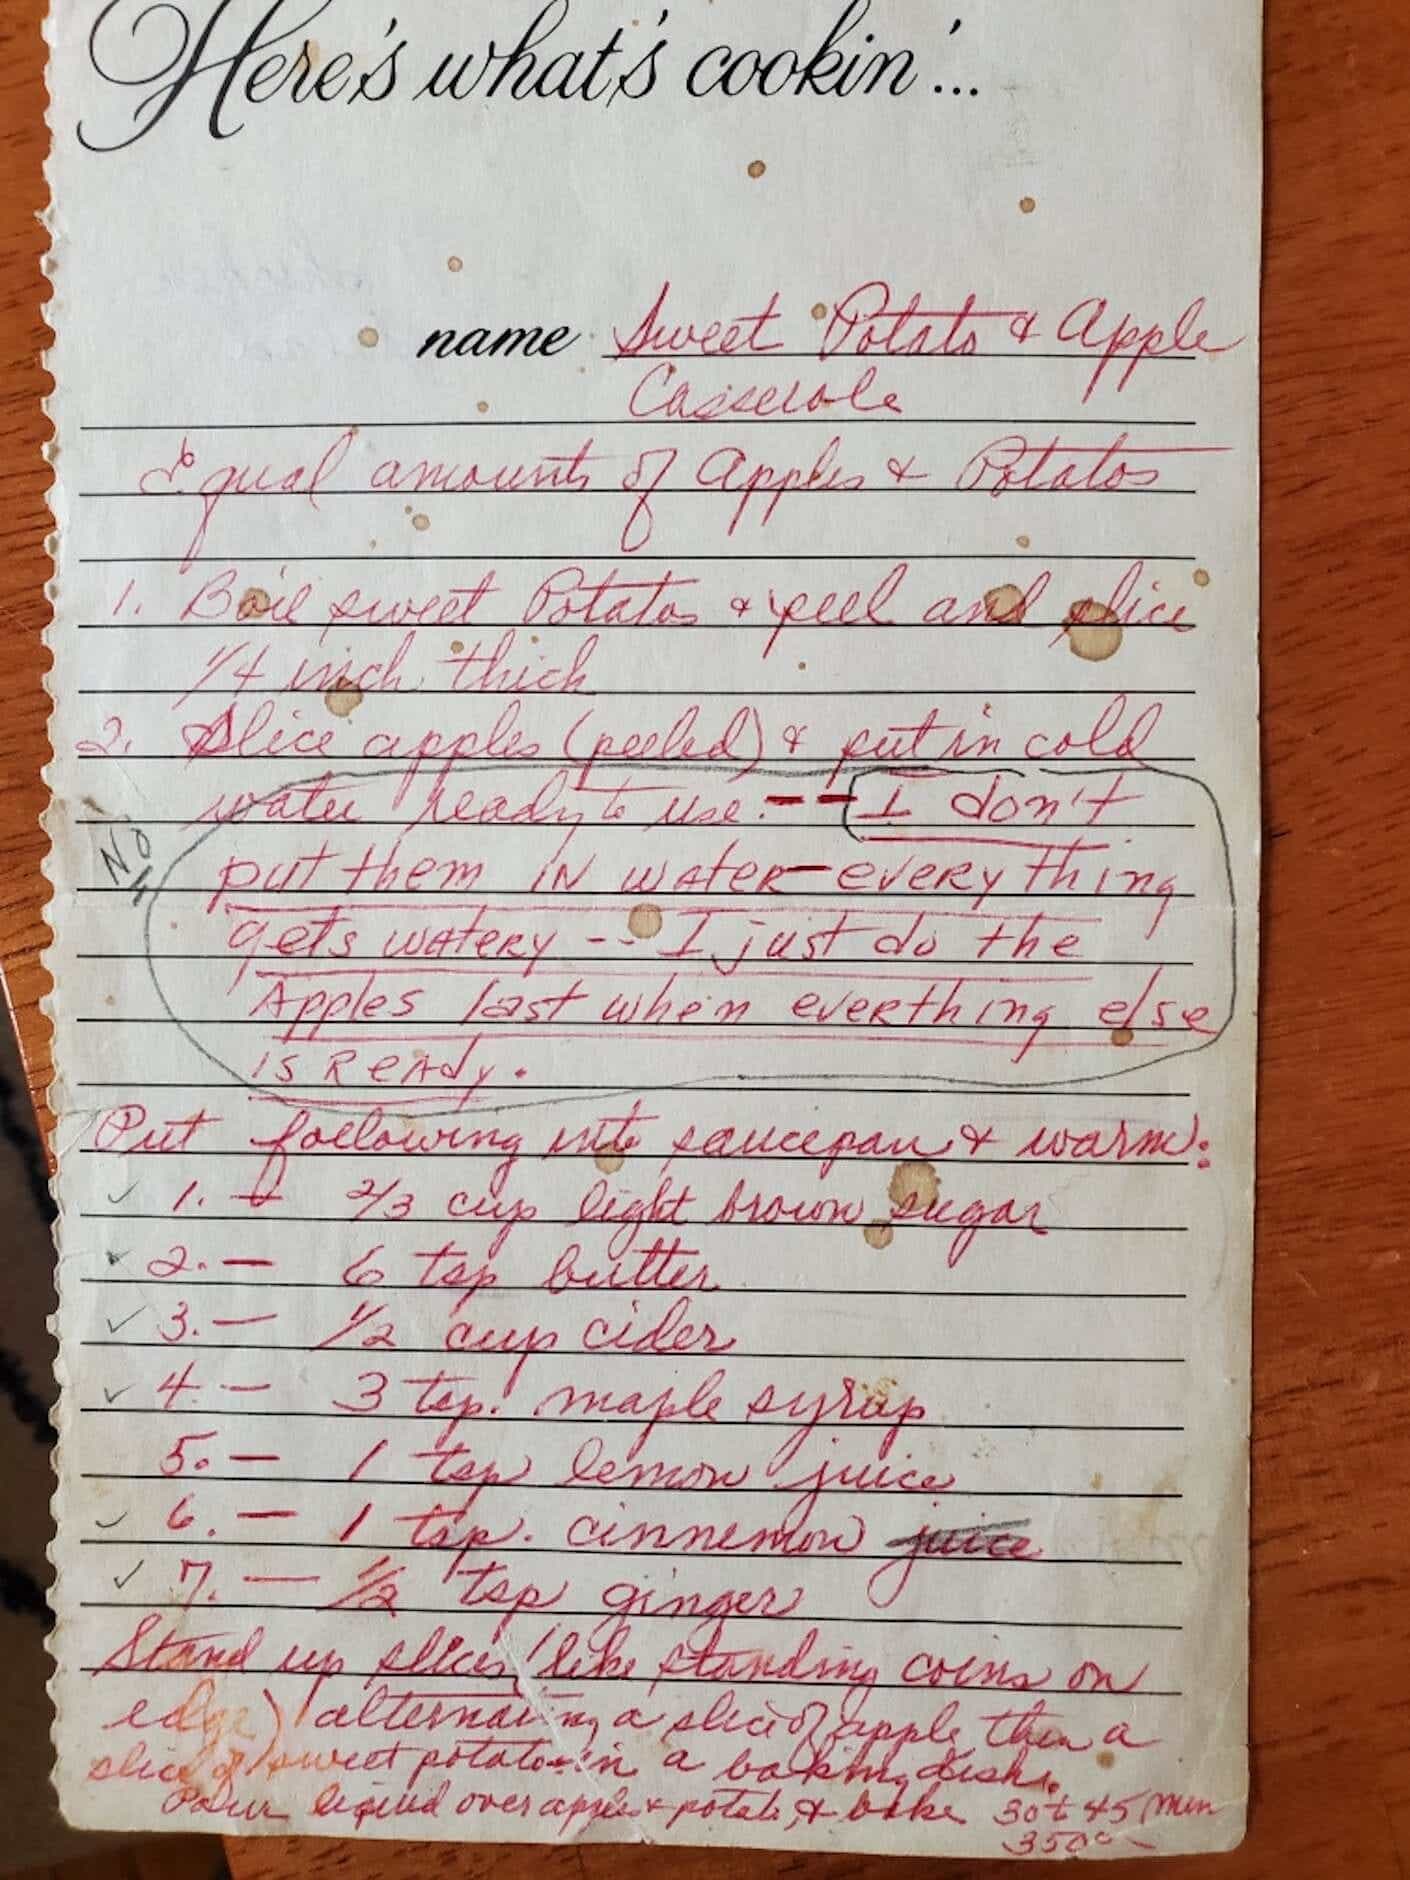 Here's what's cookin'...
name Sweet Potato & Apple
Casserole
Equal amounts of Apples & Potatos
1. Boil sweet Potatos & peel and slice
1/4 inch thick
2. Slice apples (peeled) & put in cold
water ready to use. -- I don't
No
put them in water-everything
gets watery -- I just do the
Apples last when everthing else
is Ready.
Put following into saucepan & warm:
✓ 1. — 2/3 cup light brown sugar
✓ 2. — 6 tsp butter
✓ 3. — 1/2 cup cider
✓ 4. — 3 tsp. maple syrup
5. — 1 tsp lemon juice
✓ 6. — 1 tsp. cinnemon juice
✓ 7. — 1/2 tsp ginger
Stand up slices (like standing coins on
edge) alternating a slice of apple then a
slice of sweet potato-in a baking dish.
Pour liquid over apples & potato, & bake 30 to 45 min
350°